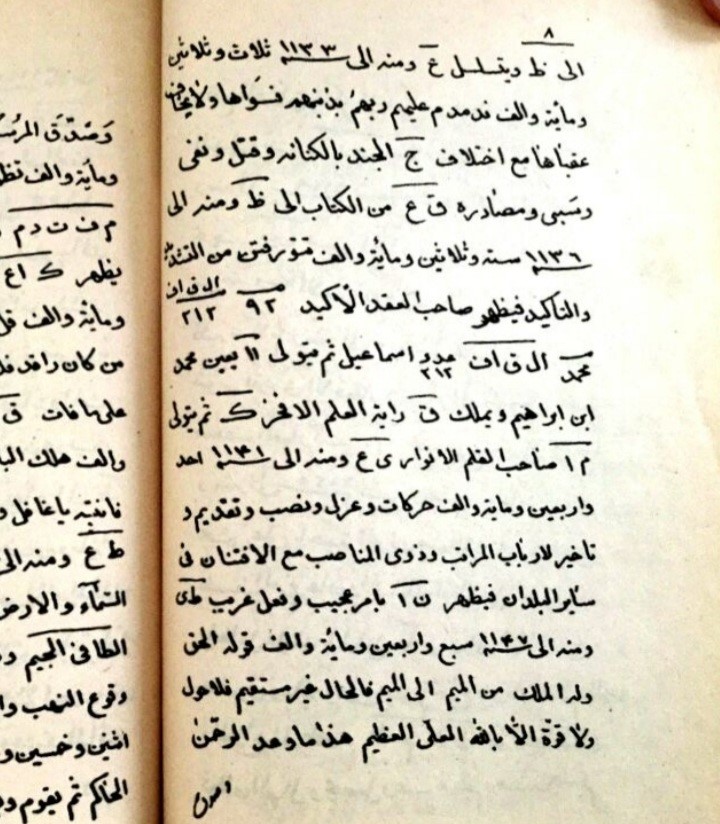 ٨
الى ظ ويتسلسل ع ومنه الى ١١٣٣ ثلاث وثلاثين
ومائة والف فدمدم عليهم ربهم بذنبهم فسواها ولا يخاف
عقباها مع اختلاف ج الجند بالكنانه وقتل ونفى
وسبى ومصادره ق ع من الكتاب الى ظ ومنه الى
١١٣٦ سته وثلاثين ومائة والف من
والتاكيد فيظهر صاحب العقد الأكيد م ٩٢ ال ق ان ٢١٢
محمد ال ق ان عدد ٢١٢ اسماعيل ثم يتولى ١١ يعين محمد
ابن ابراهيم ويملك ق راية العلم الافخر ك ثم يتولى
م ا صاحب القلم الانوار ى ع ومنه الى ١١٤١ احد
واربعين ومائة والف حركات وعزل ونصب وتقديم و
تأخير لارباب المراتب وذوى المناصب مع الافتتان فى
سائر البلدان فيظهر ن ا بامر عجيب وفعل غريب ط ى
ومنه الى ١١٤٧ سبع واربعين ومائة والف قوله الحق
وله الملك من الميم الى الميم فالحال غير مستقيم فلا حول
ولا قوة الا بالله العلى العظيم هذا ما وعد الرحمن
وصدق
وصدق
ومائة والف
م ف ت د م
يظهر ك اع
ومائة والف
من كان راقد
على ق
والف هلك
فانتبه ياغافل و
ط ع ومنه الى
السماء والارض
الطافى الجيم
وقوع النهب
اثنين وخمسين و
الحاكم ثم يقوم